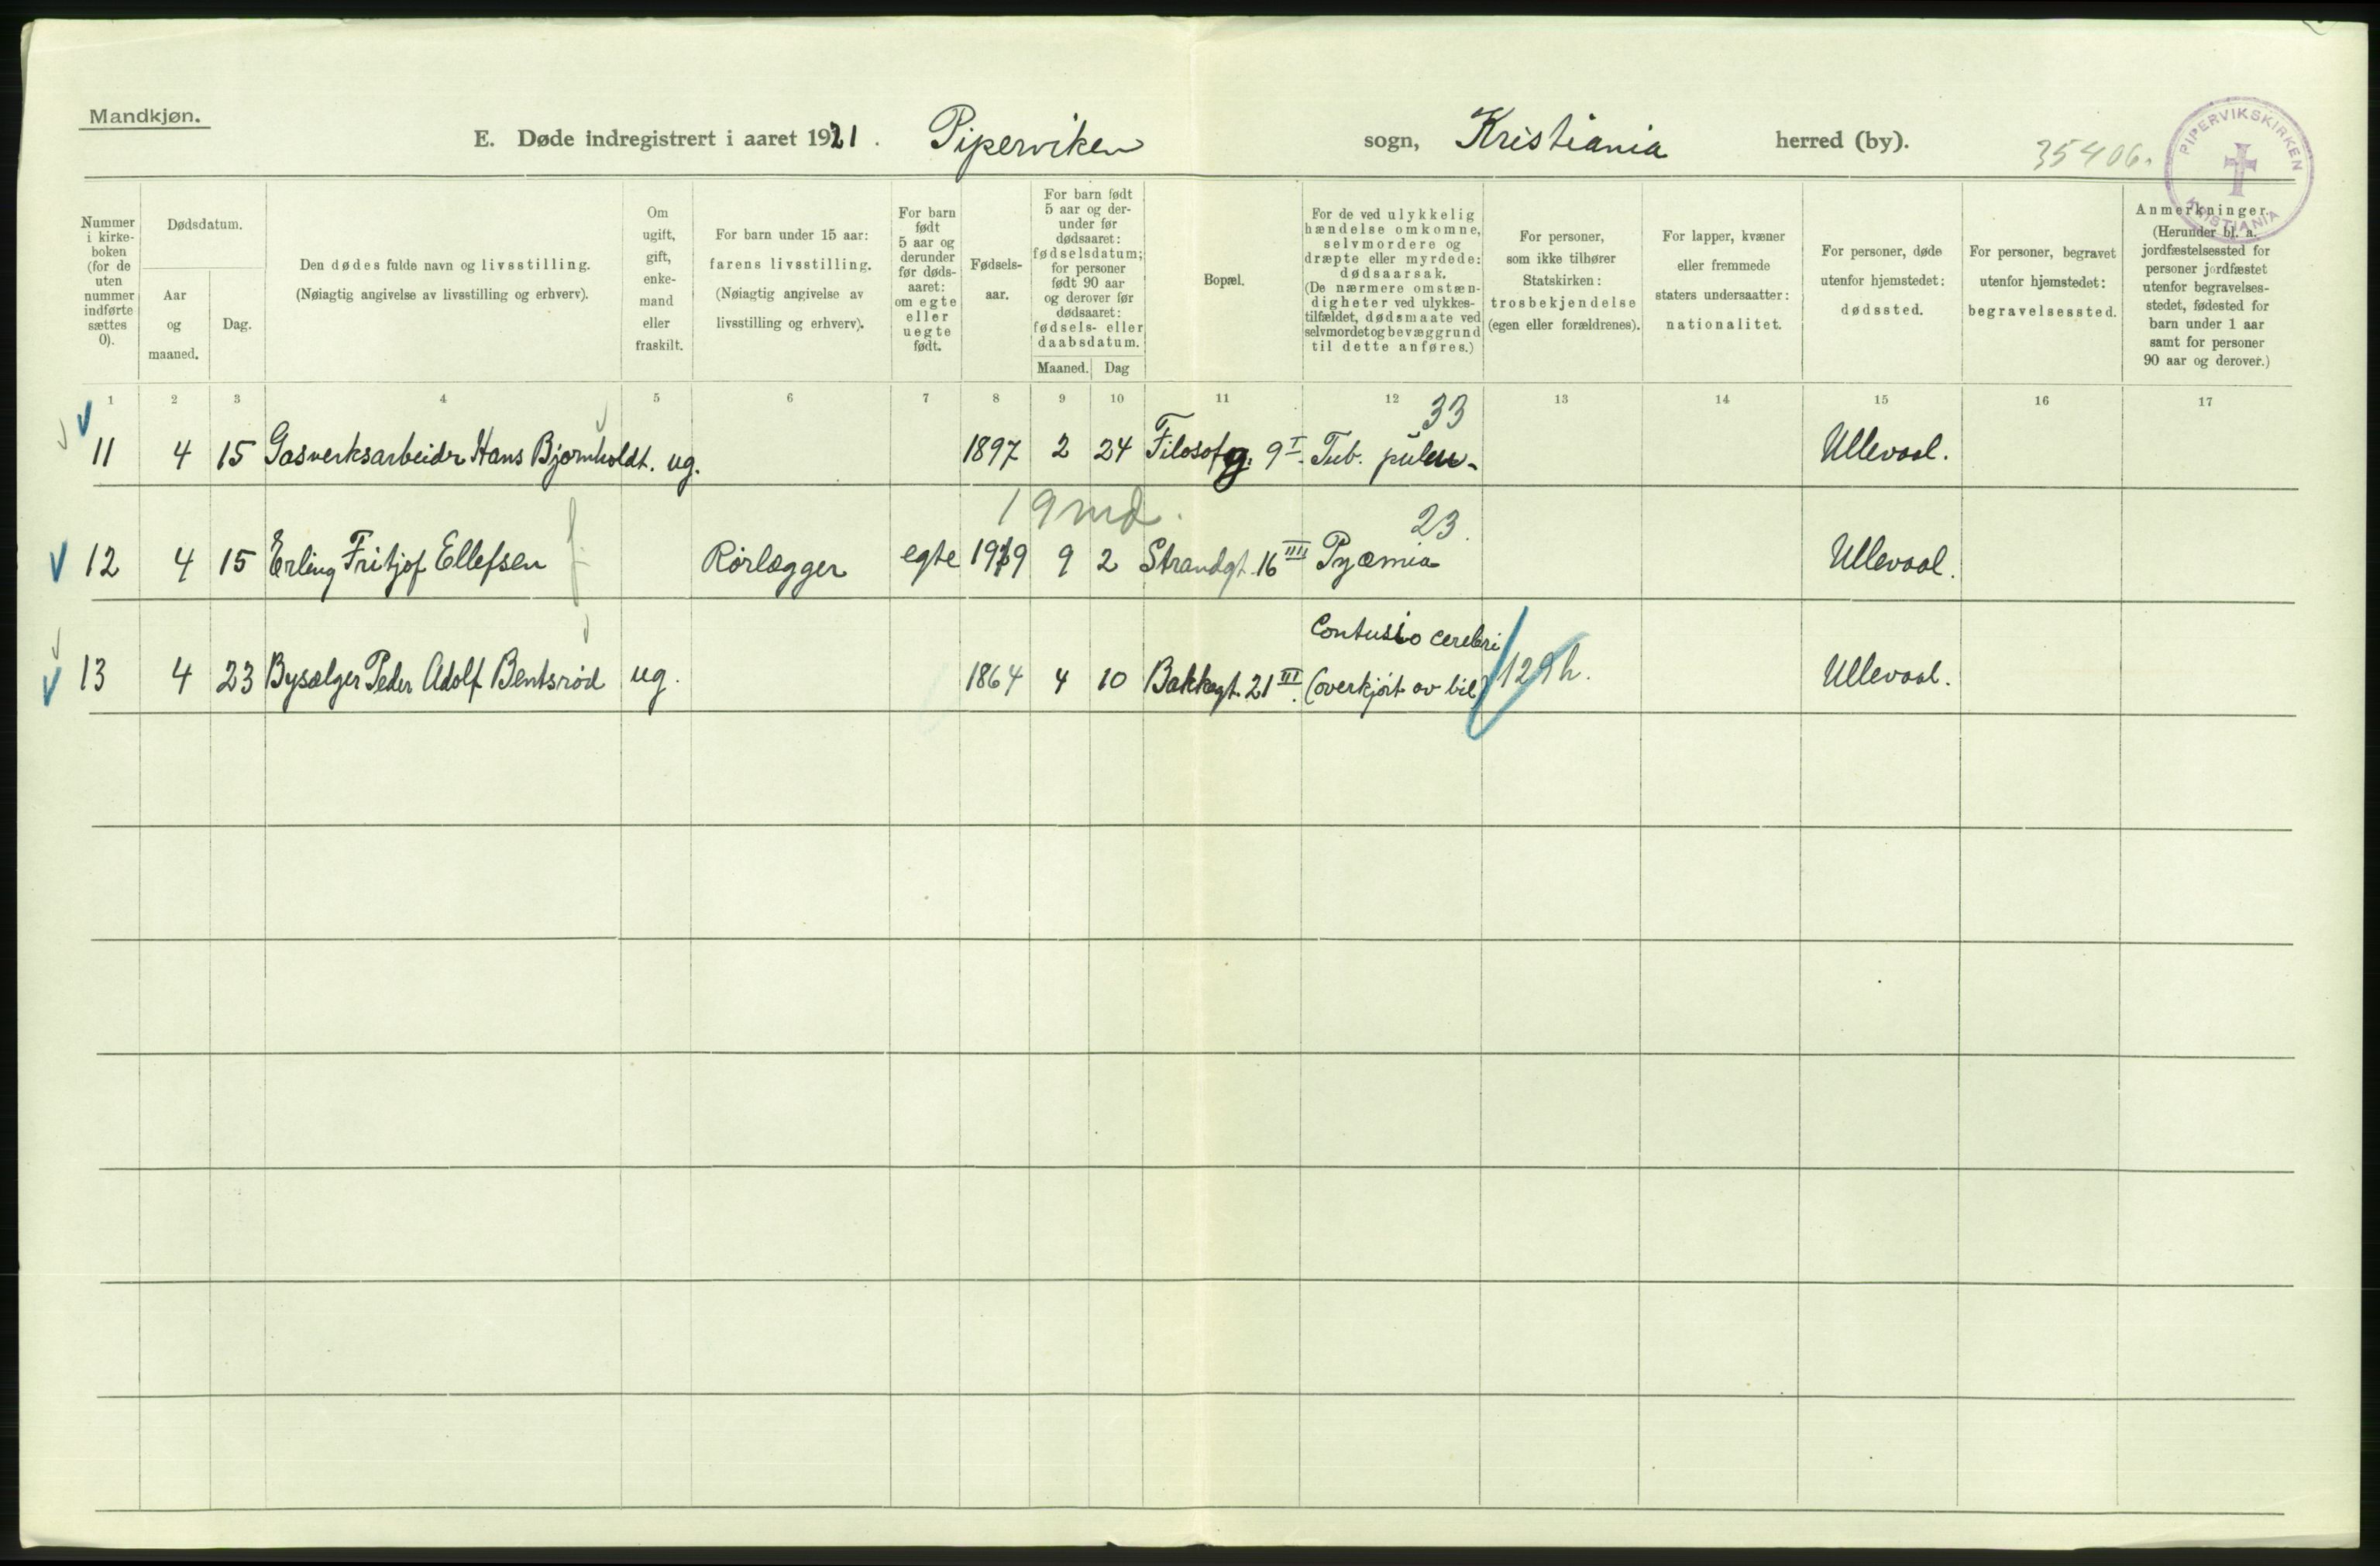 Mandkjøn.
E. Døde indregistrert i aaret 1921. Piperviken sogn, Kristiania herred (by).
35406.
PIPERVIKSKIRKEN
KRISTIANIA
Nummer i kirke- boken (for de uten nummer indførte sættes 0).
Dødsdatum.
Aar og maaned.
Dag.
Den dødes fulde navn og livsstilling.
(Nøiagtig angivelse av livsstilling og erhverv).
Om ugift, gift, enke- mand eller fraskilt.
For barn under 15 aar: farens livsstilling.
(Nøiagtig angivelse av livsstilling og erhverv).
For barn født 5 aar og derunder før døds- aaret: om egte eller uegte født.
Fødsels- aar.
For barn født 5 aar og der- under før dødsaaret: fødselsdatum; for personer født 90 aar og derover før dødsaaret: fødsels- eller daabsdatum.
Maaned. Dag
Bopæl.
For de ved ulykkelig hændelse omkomne, selvmordere og dræpte eller myrdede: dødsaarsak.
(De nærmere omstæn- digheter ved ulykkes- tilfældet, dødsmaate ved selvmordet og bevæggrund til dette anføres.)
For personer, som ikke tilhører Statskirken: trosbekjendelse (egen eller forældrenes).
For lapper, kvæner eller fremmede staters undersaatter: nationalitet.
For personer, døde utenfor hjemstedet: dødssted.
For personer, begravet utenfor hjemstedet: begravelsessted.
Anmerkninger.
(Herunder bl. a. jordfæstelsessted for personer jordfæstet utenfor begravelses- stedet, fødested for barn under 1 aar samt for personer 90 aar og derover.)
1 2 3 4 5 6 7 8 9 10 11 12 13 14 15 16 17
33
11 4 15 Gasverksarbeider Hans Bjørnholdt. ug. 1897 2 24 Filosofg. 9 I. Tub. pulm. Ullevaal.
19 md. 23.
12 4 15 Erling Fritjof Ellefsen f. Rørlægger egte 1919 9 2 Strandgt. 16 IIII Pyæmia Ullevaal.
Contusio cerebri
13 4 23 Bysælger Peder Adolf Bentsrød ug. 1864 4 10 Bakkegt. 21 III. (overkjørt av bil) 129 h. Ullevaal.